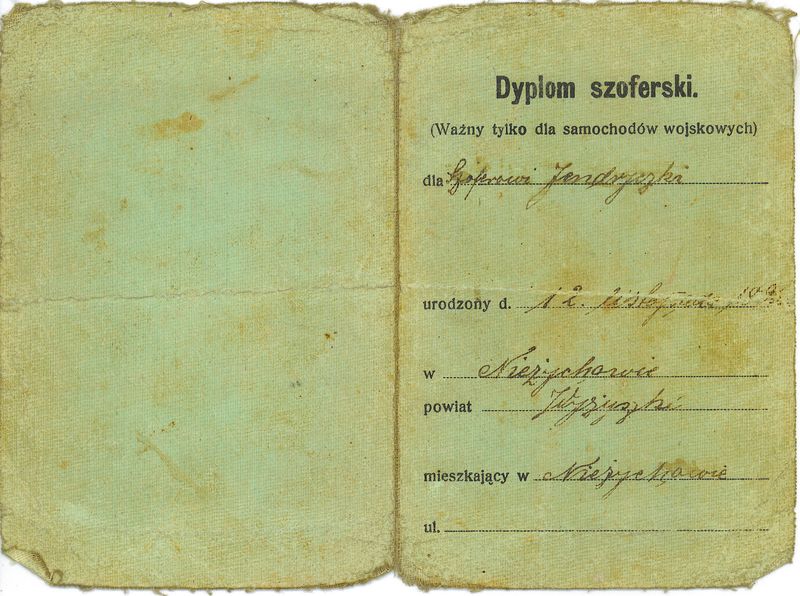 Dyplom szoferski.
(Ważny tylko dla samochodów wojskowych)
dla Szoferowi Jendryczki
urodzony d. 12. listopada
w Nieżychowie
powiat Wyrzyski
mieszkający w Nieżychowie
ul.